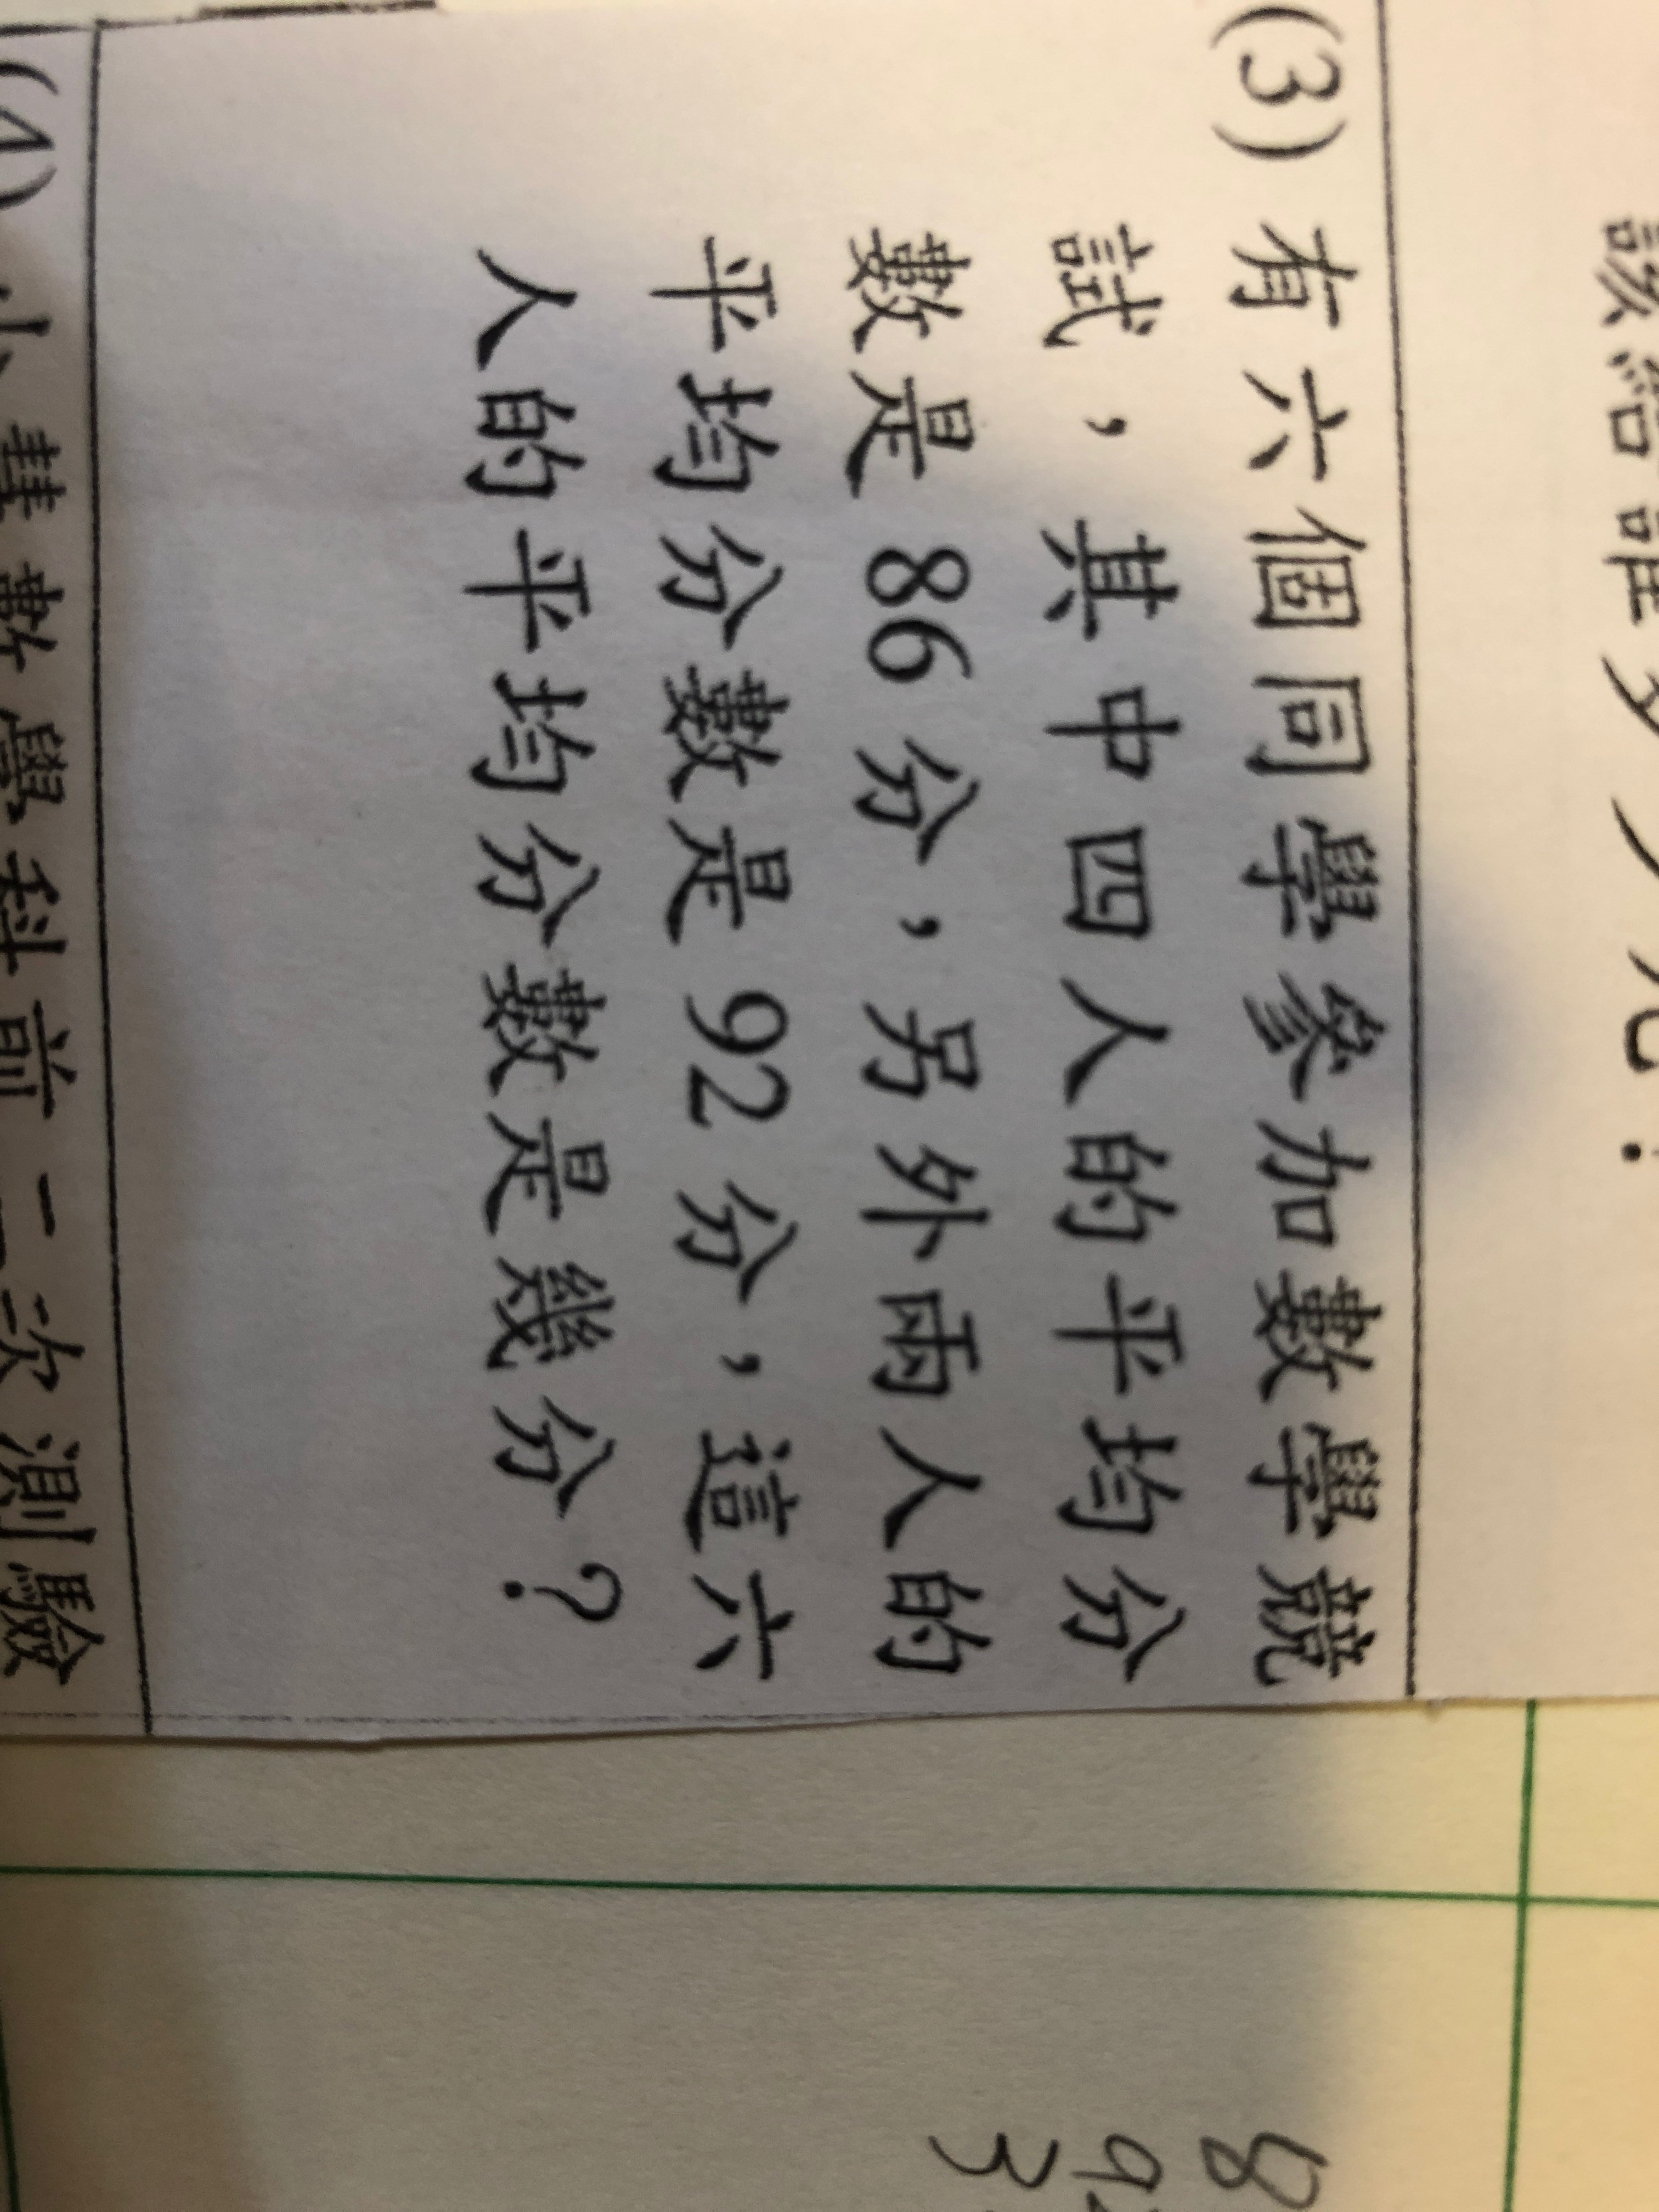 該給誰多少元?
(3) 有六個同學參加數學競
試，其中四人的平均分
數是 86 分，另外兩人的
平均分數是 92 分，這六
人的平均分數是幾分?
(4) 小慧數學科前二次測驗